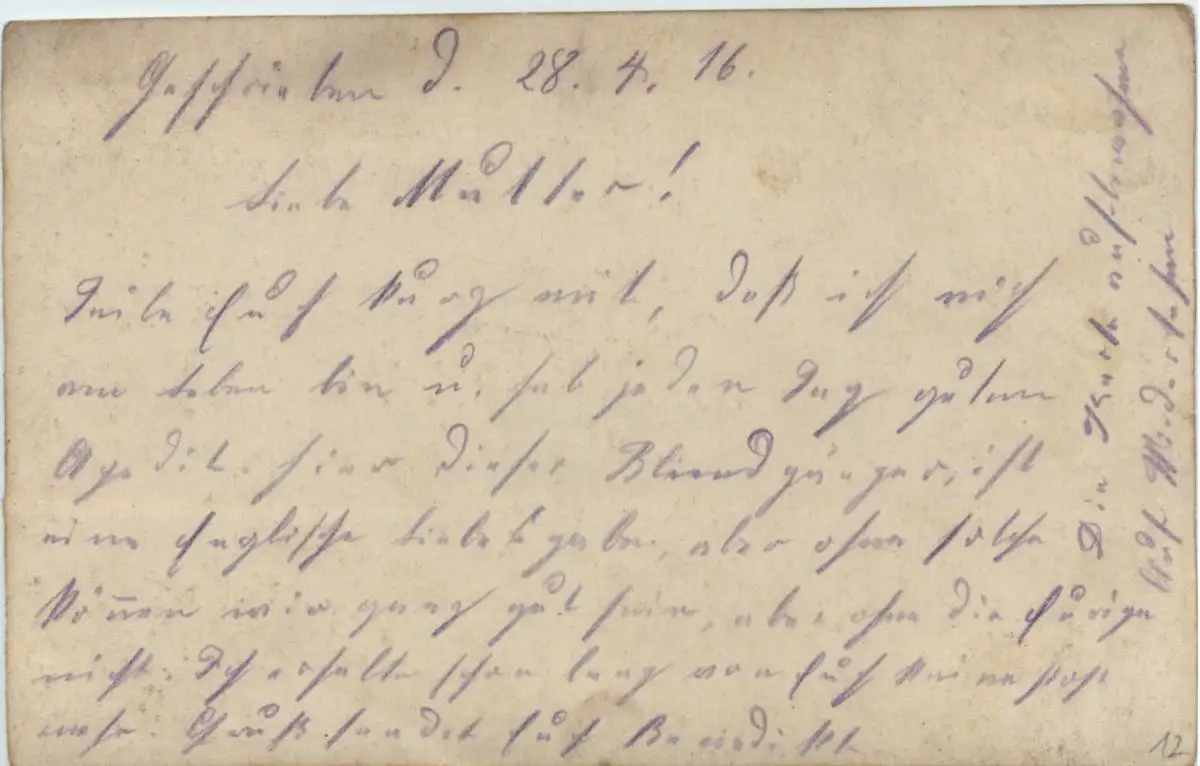 Geschrieben d. 28. 4. 16.
Liebe Mutter!
Teile Euch kurz mit, daß ich noch
am Leben bin u. hab jeden Tag guten
Apedit. hier dieser Bliendgänger, ist
eine Englische Liebesgabe, aber ohne solche
können wir ganz gut sein, aber ohne die Eurige
nicht. Ich erhalte schon lang von Euch keine Post
mehr. Gruß sendet Euch Benedikt
Die Karte aufbewahren
Auf Wiedersehen
12